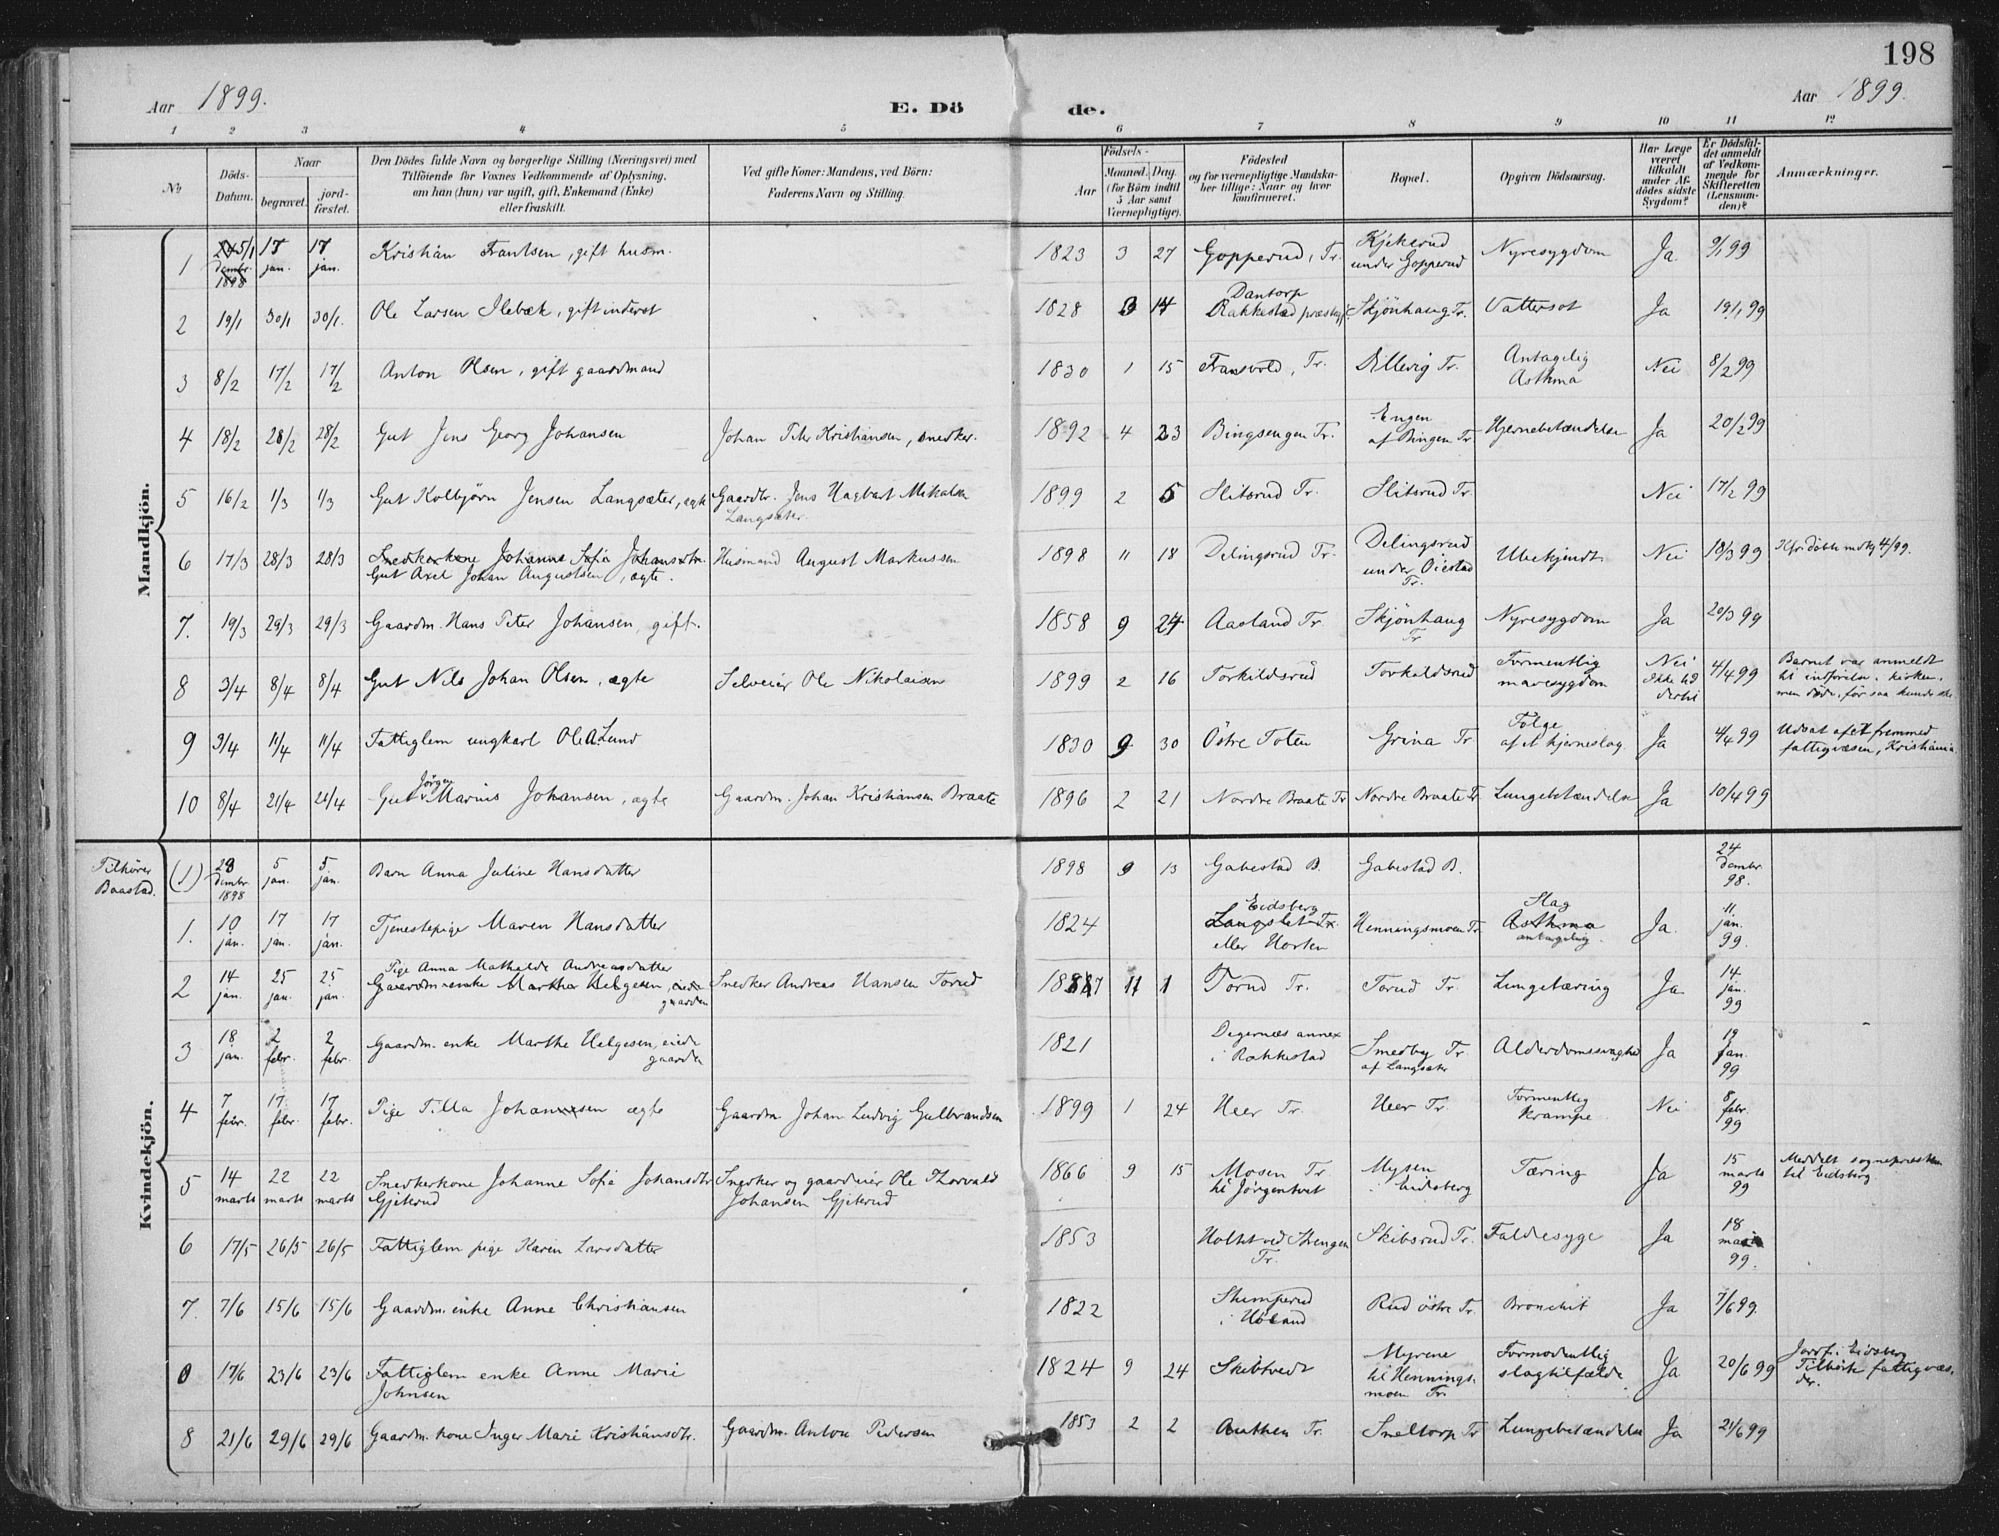 198
Aar 1899. E. Dö de. Aar 1899.
1 2 3 4 5 6 7 8 9 10 11 12
No
Döds-Datum.
Naar begravet. jordfæstet.
Den Dödes fulde Navn og borgerlige Stilling (Næringsvei) med Tilföiende for Voxnes Vedkommende af Oplysning, om han (hun) var ugift, gift, Enkemand (Enke) eller fraskilt.
Ved gifte Koner: Mandens, ved Börn: Faderens Navn og Stilling.
Födsels- Aar Maaned. Dag. (for Börn indtil 5 Aar samt Værnepligtige).
Födested og for værnepligtige Mandskaber tillige: Naar og hvor konfirmeret.
Bopæl.
Opgiven Dödsaarsag.
Har Læge været tilkaldt under Afdödes sidste Sygdom?
Er Dödsfaldet anmeldt af Vedkommende for Skifteretten (Lensmanden)?
Anmærkninger.
Mandkjön.
1 5/1 17 jan. 17 jan. Kristian Frantsen, gift husm. 1823 3 27 Gopperud, Tr. Kjekerud under Gopperud Nyresygdom Ja 9/1 99
2 19/1 30/1 30/1. Ole Larsen Ilebæk, gift inderst 1828 3 14 Dantorp Rakkestad præstegj. Skjönhaug Tr. Vattersot Ja 19/1 99
3 8/2 17/2 17/2 Anton Olsen, gift gaardmand 1830 1 15 Fransvold, Tr. Dillevig Tr. Antagelig Asthma Nei 8/2 99
4 18/2 28/2 28/2 Gut Jens Georg Johansen Johan Peter Kristiansen, snedker. 1892 4 23 Bingsengen Tr. Engen af Bingen Tr Hjernebetændelse Ja 20/2 99
5 16/2 1/3 1/3 Gut Kolbjörn Jensen Langsæter, ægte Gaardbr. Jens Hagbart Mikalsen Langsæter. 1899 2 5 Slitsrud Tr. Slitsrud Tr. Nei 17/2 99
6 17/3 28/3 28/3 Snedkerkone Johanne Sofie Johansdtr. Gut Axel Johan Augustsen, ægte. Husmand August Markussen 1898 11 18 Delingsrud Tr. Delingsrud under Oiestad Tr. Ubekjendt Nei 18/3 99 Kfr. döbte mtg 4/99.
7. 19/3 29/3 29/3 Gaardm. Hans Peter Johansen, gift. 1858 9 24 Aasland Tr. Skjönhaug Tr Nyresygdom Ja 20/3 99
8 3/4 8/4 8/4 Gut Nils Johan Olsen, ægte Selveier Ole Nikolaisen 1899 2 16 Torkildsrud Torkildsrud Formentlig mavesygdom Nei ikke tid dertil 4/4 99 Barnet var anmeldt til indförelse i kirken, men döde, för saa kunde ske
9 3/4 11/4 11/4 Fattiglem ungkarl Ole A. Lund 1830 9 30 Östre Toten Grina Tr Fölge af et hjerneslag. Ja 4/4 99 Udsat af et fremmed fattigvæsen, Kristiania
10 8/4 21/4 21/4 Gut Jörgen Marius Johansen, ægte Gaardm. Johan Kristiansen Braate 1896 2 21 Nordre Braate Tr Nordre Braate Tr Lungebetændelse Ja 10/4 99
Tilhörer Baastad.
(1) 23 dembr. 1898 5 jan. 5 jan. Barn Anna Juline Hansdatter 1898 9 13 Gabestad B. Gabestad B. 24 dembr. 98.
Kvindekjön.
1. 10 jan. 17 jan. 17 jan. Tjenestepige Maren Hansdatter 1824 Eidsberg Langslet Tr. eller Horten Henningsmoen Tr. Slag Asthma antagelig. Ja. 11 jan. 99.
2 14 jan. 25 jan. 25 jan. Pige Anna Mathilde Andreasdatter Gaardm. enke Marthe Helgesen, eiede gaarden Snedker Andreas Hansen Torud 1887 11 1 Torud Tr. Torud Tr. Lungetæring Ja 14 jan. 99
3 18 jan. 2 febr. 2 febr. Gaardm. enke Marthe Helgesen, eiede gaarden 1821 Degernæs annex i Rakkestad Smedby Tr. af Langsæter Alderdomssvaghed Ja 19 jan. 99
4 7 febr. 17 febr. 17 febr. Pige Tilla Johansen ægte Gaardm Johan Ludvig Gulbrandsen 1899 1 24 Heer Tr. Heer Tr. Formentlig Krampe Nei 8 febr. 99
5 14 marts 22 marts 22 marts Snedkerkone Johanne Sofie Johansdtr Gjikerud Snedker og gaardeier Ole Thorvald Johansen Gjikerud 1866 9 15 Mosen Tr til Jörgentvet Mysen i Eidsberg Tæring Ja 15 marts 99 Meddelt sognepresten til Eidsberg
6 17/5 26/5 26/5 Fattiglem pige Karen Larsdatter 1853 Holtet ved Skengen Tr. Skibsrud Tr. Faldesyge Ja 18 99.
7. 7/6 15/6 15/6 Gaardm. enke Anne Christiansen 1822 Skimperud i Höland Rud östre Tr. Bronchit Ja 7/6 99.
0 17/6 23/6 23/6 Fattiglem enke Anne Marie Johnsen 1824 9 24 Skibtvedt Myrene til Henningsmoen Tr. Formodentlig slagtilfælde Ja 20/6 99 Jordf. i Eidsberg Tilhörte fattigvæs. der.
8 21/6 29/6 29/6 Gaardm. kone Inger Marie Kristiansdtr. Gaardm. Anton Pedersen 1853 2 2 Authen Tr. Sneltorp Tr Lungebetændelse Ja 21/6 99